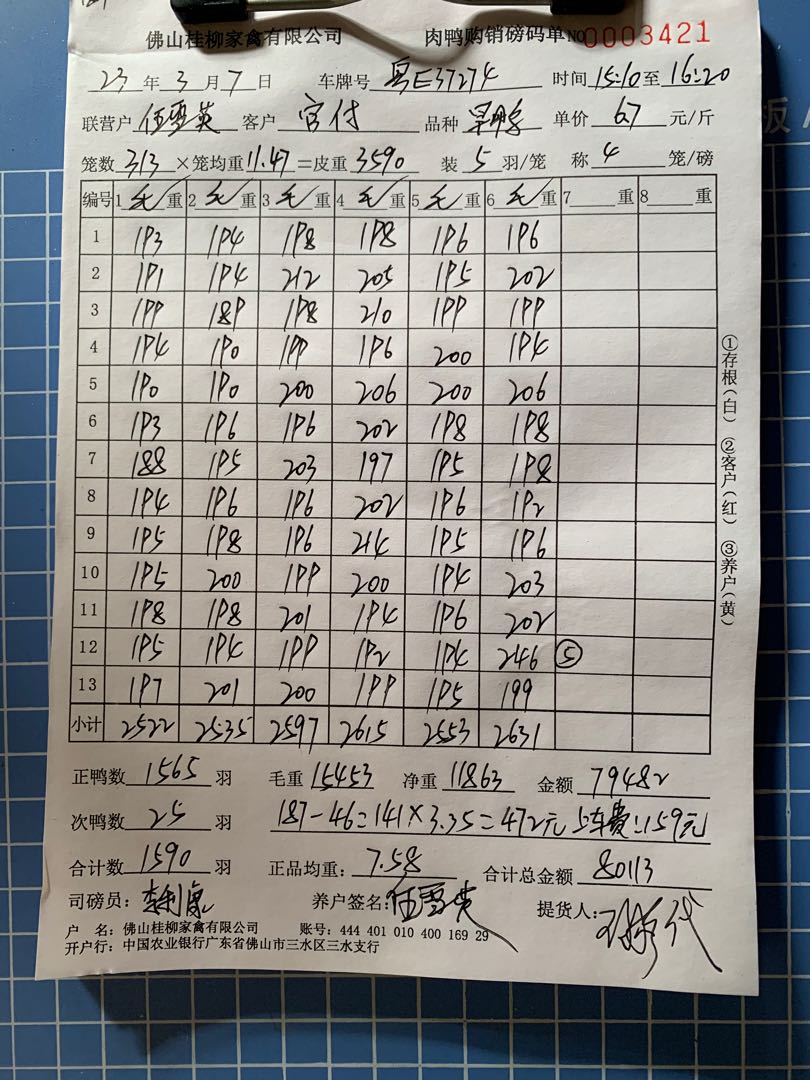 佛山桂柳家禽有限公司 肉鸭购销磅码单 NO 0003421
23 年 3 月 7 日 车牌号 粤E37274 时间 15:10 至 16:20
联营户 伍雪英 客户 官付 品种 单价 6.7 元/斤
笼数 313 ×笼均重 11.47 =皮重 3590 装 5 羽/笼 称 4 笼/磅
编号 1 毛 重 2 毛 重 3 毛 重 4 毛 重 5 毛 重 6 毛 重 7 重 8 重
1 193 194 198 198 196 196
2 191 194 212 205 195 202
3 199 189 198 210 199 199
4 194 190 199 196 200 194
5 190 190 200 206 200 206
6 193 196 196 202 198 198
7 188 195 203 197 195 198
8 194 196 196 202 196 192
9 195 198 196 214 195 196
10 195 200 199 200 194 203
11 198 198 201 194 196 202
12 195 194 199 192 194 246 ⑤
13 197 201 200 199 195 199
小计 2522 2535 2597 2615 2553 2631
①存根(白) ②客户(红) ③养户(黄)
正鸭数 1565 羽 毛重 15453 净重 11863 金额 79482
次鸭数 25 羽 187-46=141×3.35=472元 上车费:159元
合计数 1590 羽 正品均重: 7.58 合计总金额 80113
司磅员: 养户签名: 伍雪英 提货人:
户 名: 佛山桂柳家禽有限公司 账号: 444 401 010 400 169 29
开户行: 中国农业银行广东省佛山市三水区三水支行